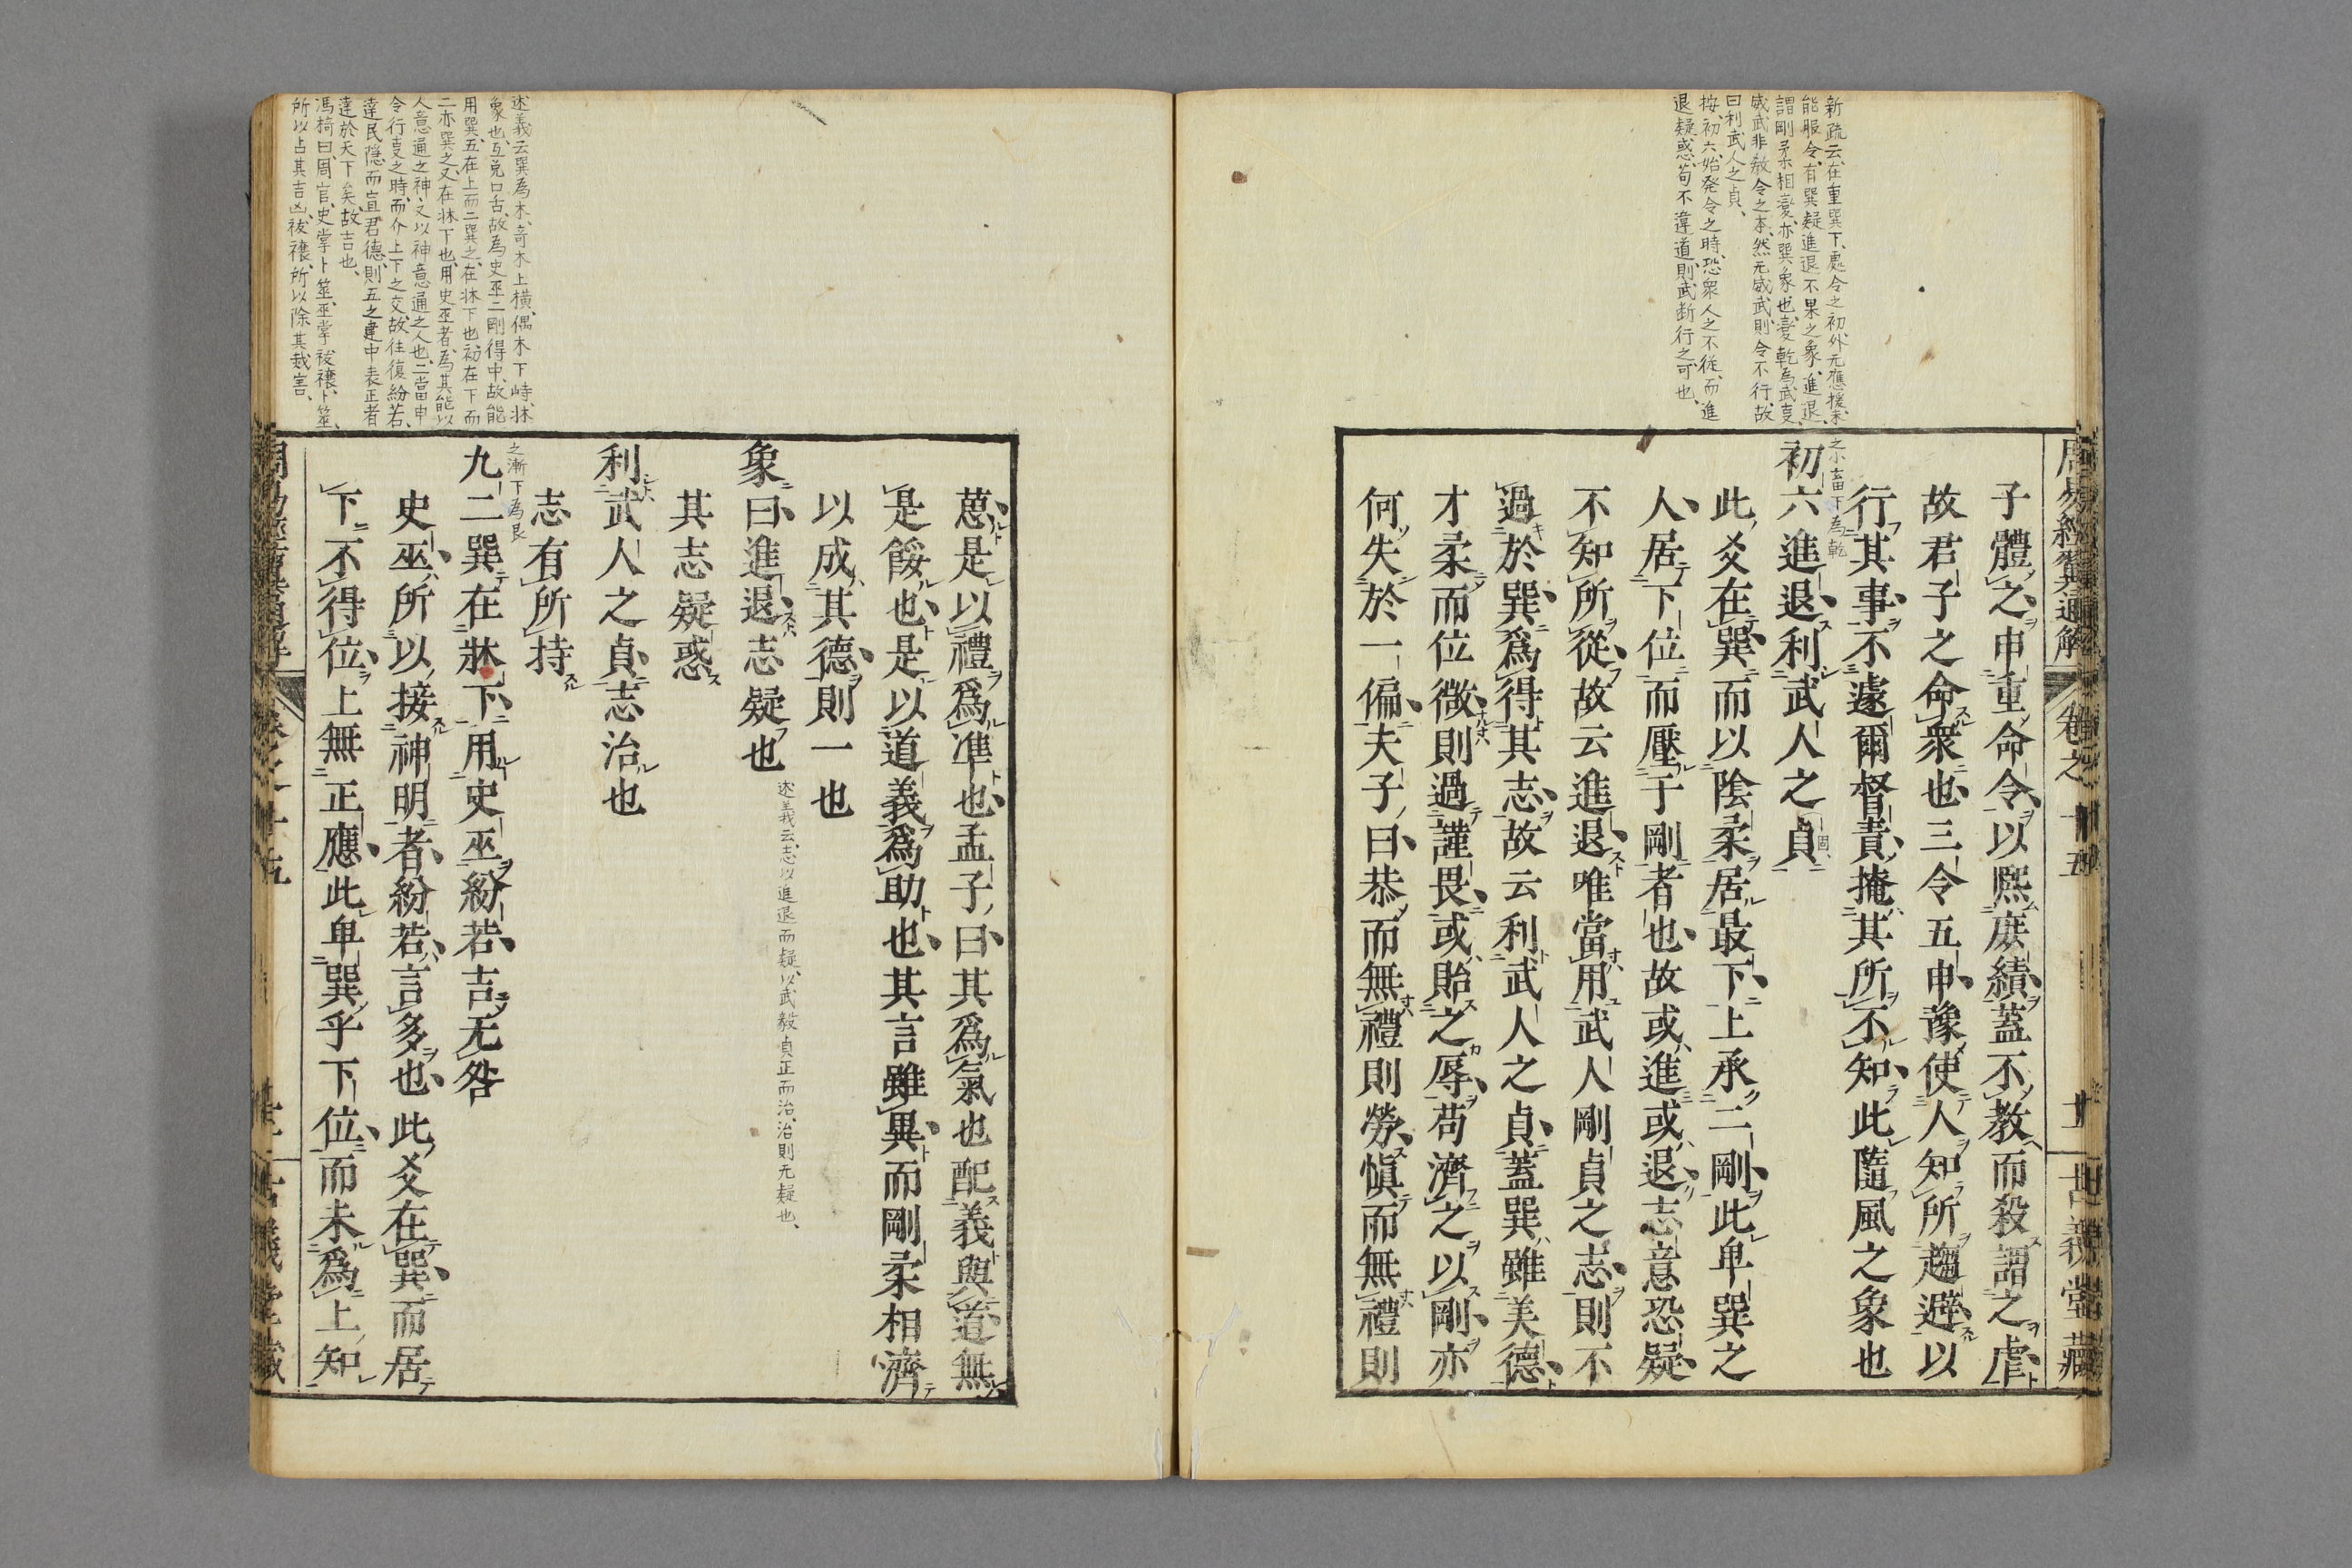 新疏云、在重巽下、處令之初、外无應援、未
能服令、有巽疑進退不果之象、進退、
謂剛柔相變、亦巽象也、變乾為武、
威武非敎令之本、然无威武、則令不行、故
曰利武人之貞、
按、初六、始発令之時、恐衆人之不従、而進
退疑惑、苟不違道、則武断行之可也、
周易經翼通解
卷之十五
古義堂藏
子體之申重命令以熙庶績蓋不教而殺謂之虐
故君子之命衆也三令五申豫使人知所趨避以
行其事不遽爾督責掩其所不知此隨風之象也
之小畜下為乾
初六進退利武人之貞
此爻在巽而以陰柔居最下上承二剛此卑巽之
人居下位而壓于剛者也故或進或退志意恐疑
不知所從故云進退唯當用武人剛貞之志則不
過於巽爲得其志故云利武人之貞蓋巽雖美德
才柔而位微則過謹畏或貽之辱苟濟之以剛亦
何失於一偏夫子曰恭而無禮則勞愼而無禮則
述義云、巽為木、奇木上横、偶木下峙、牀
象也、互兌口舌、故為史巫、二剛得中、故能
用巽、五在上而二巽之、在牀下也、初在下而
二亦巽之、又在牀下也、用史巫者、為其能以
人意通之神、又以神意通之人也、二當申
令行事之時、而介上下之交、故往復紛若、
達民隠、而宣君德、則五之建中表正者
達於天下矣、故吉也、
馮椅曰、周官、史掌卜筮、巫掌祓禳、卜筮、
所以占其吉凶、祓禳、所以除其烖害、
葸是以禮爲準也孟子曰其爲氣也配義與道無
是餒也是以道義爲助也其言雖異而剛柔相濟
以成其德則一也
象曰進退志疑也
述義云、志以進退而疑、以武毅貞正而治、治則无疑也、
其志疑惑
利武人之貞志治也
志有所持
之漸下為艮
九二巽在牀下用史巫紛若吉无咎
史巫所以接神明者紛若言多也此爻在巽而居
下不得位上無正應此卑巽乎下位而未爲上知